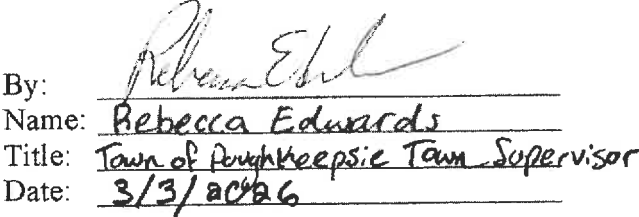 By: Rebecca Ed
Name: Rebecca Edwards
Title: Town of Poughkeepsie Town Supervisor
Date: 3/3/2026